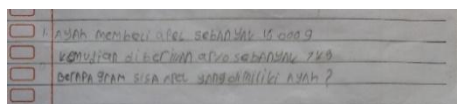 1. AYAH membeli Apel sebanyak 15 000 g
kemudian diberikan Aryo sebanyak 7 kg
Berapa gram sisa Apel yang dimiliki Ayah ?